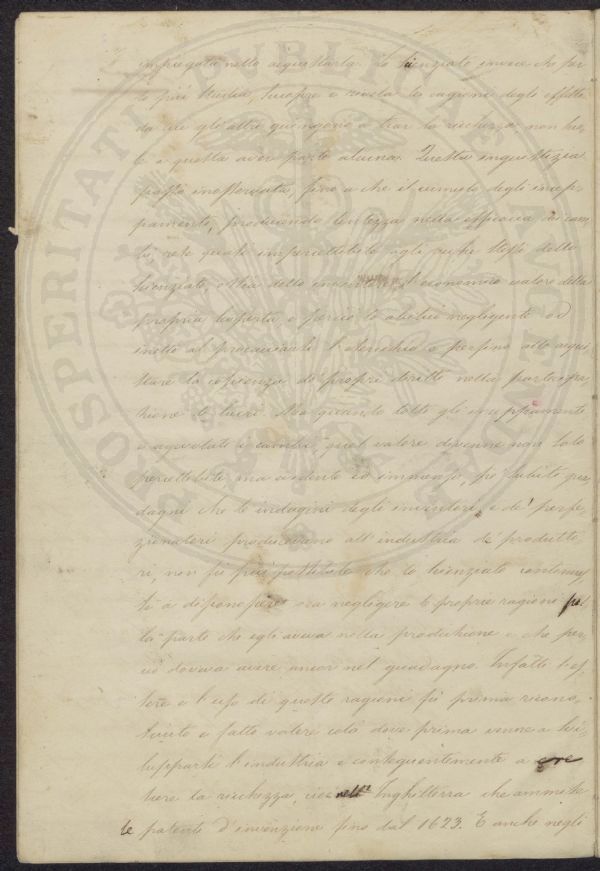 impiegata nella acquistarla. Lo scienziato invece che per
lo più scopre e rivela la ragione degli effetti
da cui gli altri giungono a trar la ricchezza, non ha
e questa aver parte alcuna. Questa ingiustizia
passò inosservata, fino a che il cumulo degli incep-
pamenti, producendo lentezza nella efficacia dei cam-
bi, rese quasi impercettibile agli occhi stessi dello
scienziato, ossia dello inventore l'economico valore della
propria scoperta e perciò lo abituò negligente od
inetto al procacciarsi e persino allo acqui-
stare la coscienza de' propri diritti nella partecipa-
zione ai lucri. Ma quando tolti gli inceppamenti
e agevolati i cambi, quel valore divenne non solo
percettibile, ma evidente ed immenso, pei subiti gua-
dagni che le indagini degli inventori e de' perfe-
zionatori producevano all'industria de' produtto-
ri, non fu più possibile che lo scienziato continuas-
se a disconoscere ora negligere le proprie ragioni pel
la parte che egli aveva nella produzione e che per-
ciò doveva avere ancor nel guadagno. Infatti l'es-
sere e l'uso di queste ragioni fu prima ricono-
sciuto e fatto valere colà dove prima venne a svi-
lupparsi l'industria e conseguentemente a cre
scere la ricchezza, cioè nell' Inghilterra che ammise
le patenti d'invenzione fino dal 1623. E anche negli
PROSPERITATI PVBLICAE AVGENDAE